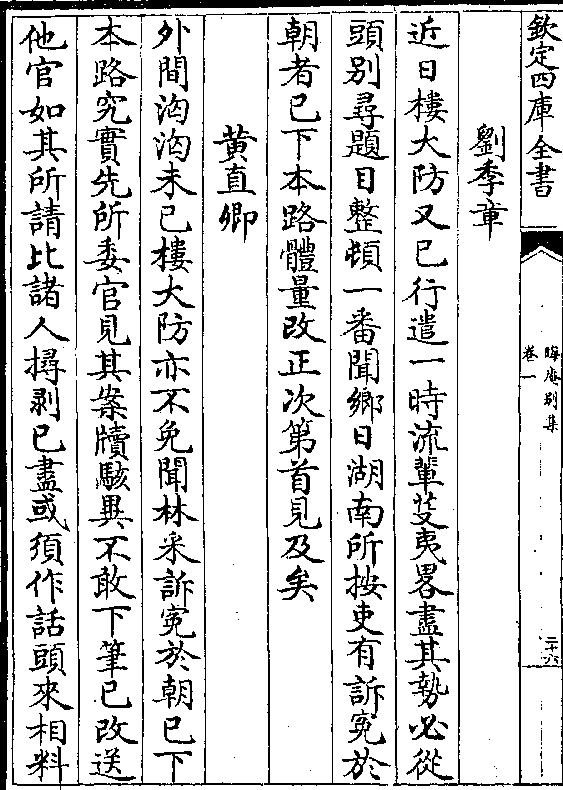 欽定四庫全書
晦庵別集
卷一
二十六
劉季章
近日樓大防又已行遣一時流輩芟夷畧盡其勢必從
頭別尋題目整頓一番聞鄉日湖南所按吏有訴寃於
朝者已下本路體量改正次第首見及矣
黃直卿
外間洶洶未已樓大防亦不免聞林采訴寃於朝已下
本路究實先所委官見其案牘駭異不敢下筆已改送
他官如其所請比諸人撏剥已盡或須作話頭來相料